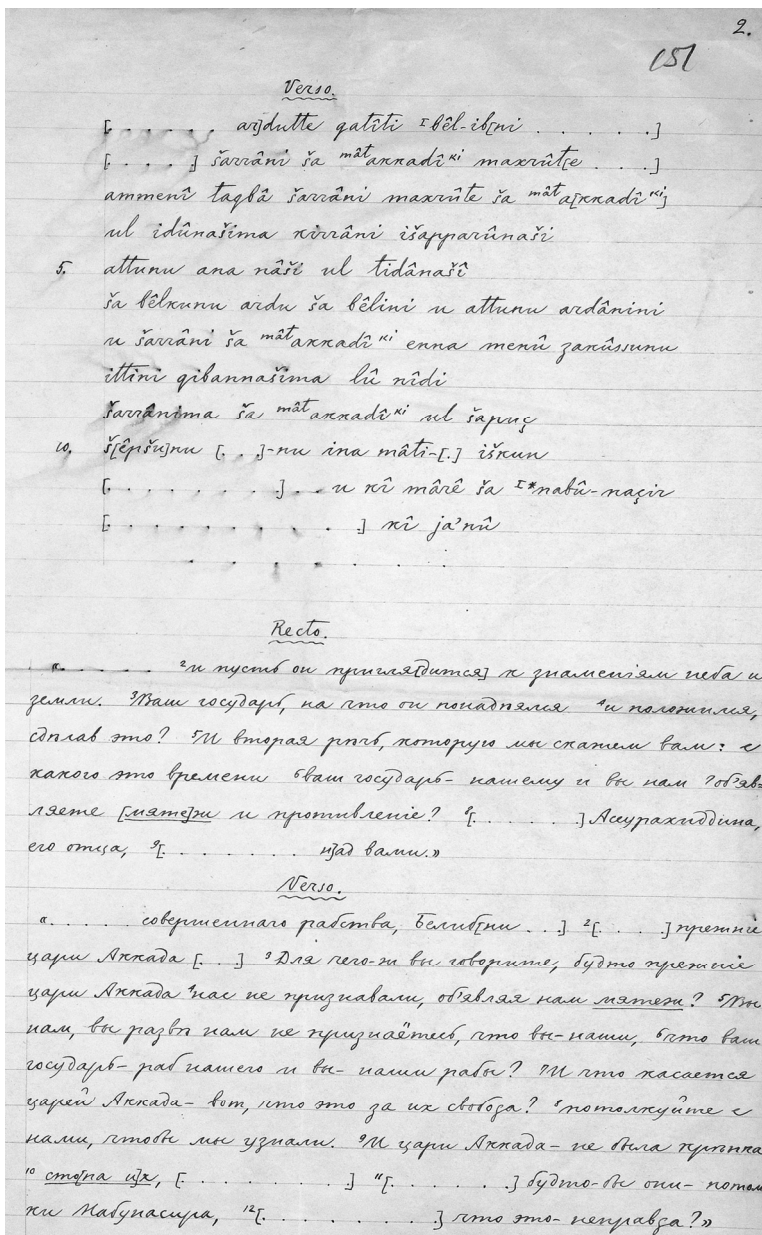 2.
151
Verso.
[. . . . . . ar]dutte qatîti ᴵbêl-ib[ni . . . . . .]
[. . . .] šarrâni ša ᵐᵃ̂ᵗakkadîᵏⁱ maxrût[e . . . .]
ammenî taqbâ šarrâni maxrûte ša ᵐᵃ̂ᵗa[kkadîᵏⁱ]
ul idûnašima kirrâni išapparûnaši
5. attunu ana nâši ul tidânašî
ša bêlkunu ardu ša bêlini u attunu ardânini
u šarrâni ša ᵐᵃ̂ᵗakkadîᵏⁱ enna menû zakûssunu
ittini qibannašima lû nîdi
šarrânima ša ᵐᵃ̂ᵗakkadîᵏⁱ ul šapuç
10. š[êpšu]nu [. . .]-nu ina mâti-[.] iškun
[. . . . . . . .] . . u kî mârê ša ᴵ*nabû-naçir
[. . . . . . . . . . .] kî ja’nû
. . . . . . .
Recto.
«. . . . . . ²и пусть он пригля[дится] к знаменіям неба и
земли. ³Ваш государь, на что он понадѣялся ⁴и положился,
сдѣлав это? ⁵И вторая рѣчь, которую мы скажем вам: с
какого это времени ⁶ваш государь- нашему и вы нам ⁷об’яв-
ляете [мяте]ж и противленіе? ⁸[. . . . . . .] Асурахиддина,
его отца, ⁹[. . . . . . . . н]ад вами.»
Verso.
«. . . . . . совершеннаго рабства, Белиб[ни . . .] ²[. . . . .] прежніе
цари Аккада [. . .] ³Для чего-ж вы говорите, будто прежніе
цари Аккада ⁴нас не признавали, об’являя нам мятеж? ⁵Вы
нам, вы развѣ нам не признаётесь, что вы- наши, ⁶что ваш
государь- раб нашего и вы- наши рабы? ⁷И что касается
царей Аккада- вот, что это за их свобода? ⁸потолкуйте с
нами, чтобы мы узнали. ⁹И цари Аккада- не была крѣпка
¹⁰ сто[па и]х, [. . . . . . . . .] ¹¹[. . . . . . .] будто-бы они- потом
ки Набунасира, ¹²[. . . . . . . . . .] что это- неправда?»